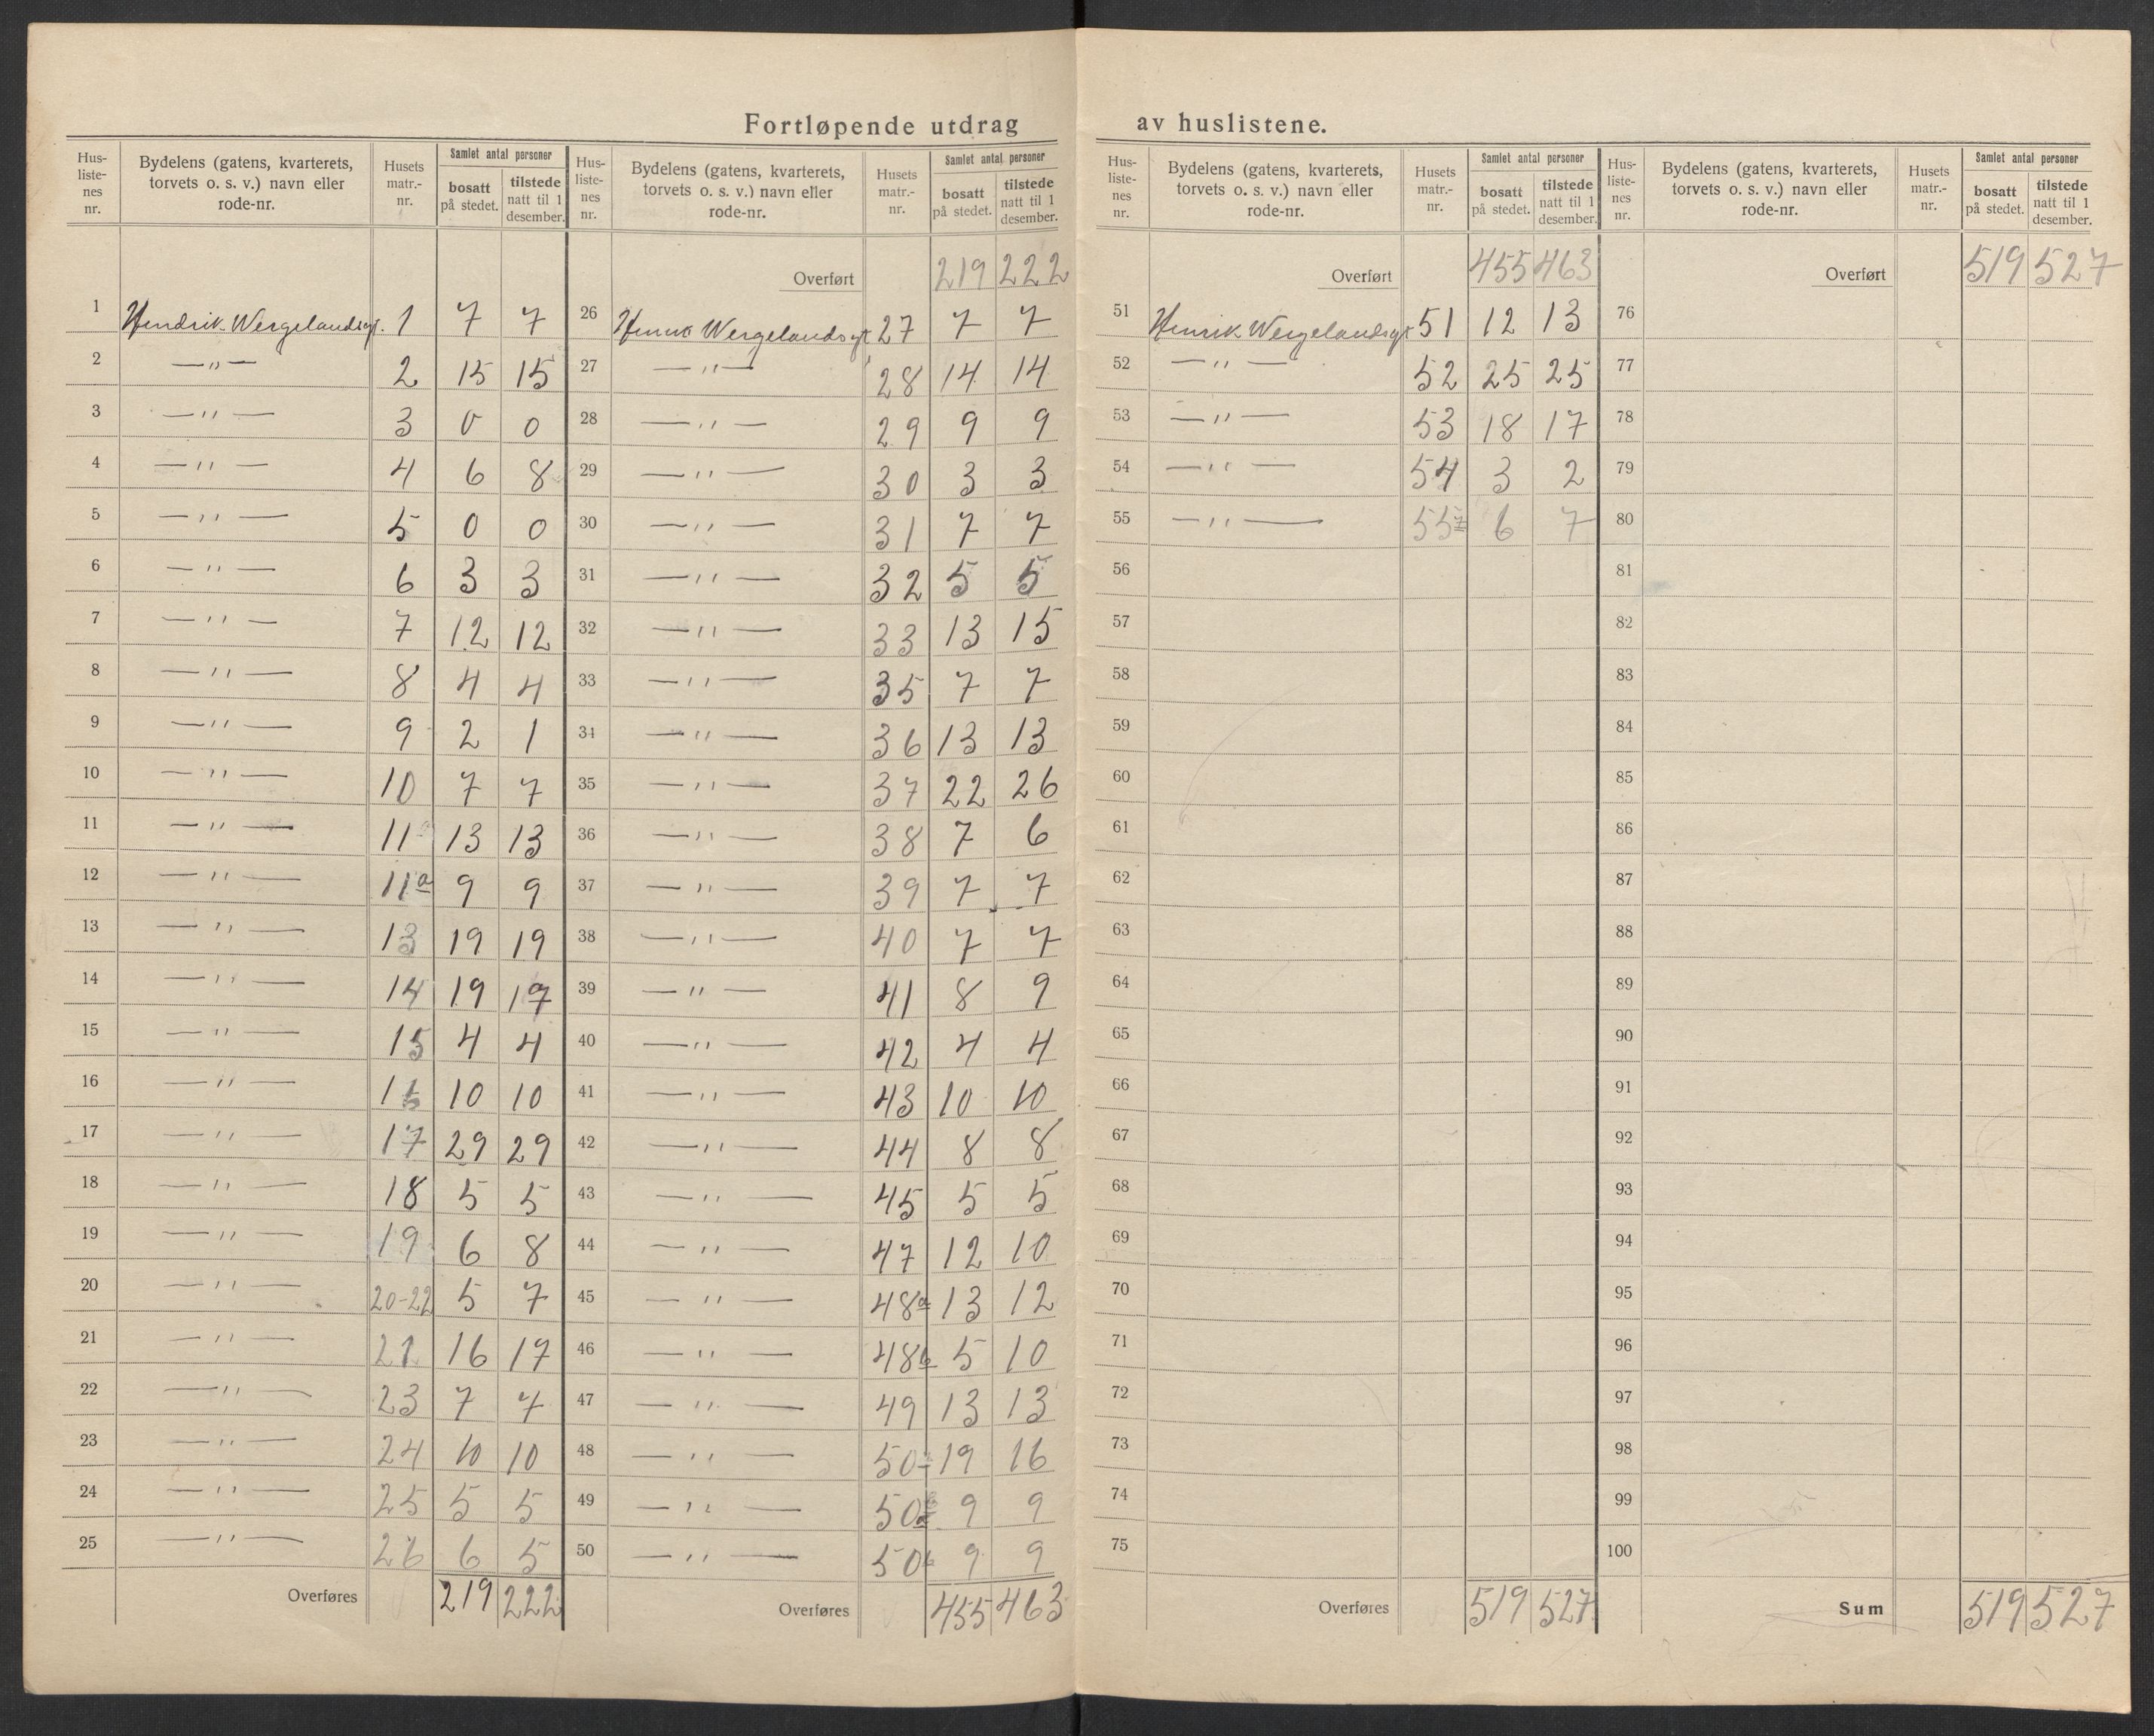 Fortløpende utdrag av huslistene.
Hus-liste-nes nr. | Bydelens (gatens, kvarterets, torvets o. s. v.) navn eller rode-nr. | Husets matr.-nr. | Samlet antal personer bosatt på stedet. | tilstede natt til 1 desember.
1 Hendrik Wergelandsgt. 1 7 7
2 —"— 2 15 15
3 —"— 3 0 0
4 —"— 4 6 8
5 —"— 5 0 0
6 —"— 6 3 3
7 —"— 7 12 12
8 —"— 8 4 4
9 —"— 9 2 1
10 —"— 10 7 7
11 —"— 11 13 13
12 —"— 11a 9 9
13 —"— 13 19 19
14 —"— 14 19 17
15 —"— 15 4 4
16 —"— 10 10
17 —"— 17 29 29
18 —"— 18 5 5
19 —"— 19 6 8
20 —"— 20-22 5 7
21 —"— 21 16 17
22 —"— 23 7 7
23 —"— 24 10 10
24 —"— 25 5 5
25 —"— 26 6 5
Overføres 219 222
Hus-liste-nes nr. | Bydelens (gatens, kvarterets, torvets o. s. v.) navn eller rode-nr. | Husets matr.-nr. | Samlet antal personer bosatt på stedet. | tilstede natt til 1 desember.
Overført 219 222
26 Henrik Wergelandsgt 27 7 7
27 —"— 28 14 14
28 —"— 29 9 9
29 —"— 30 3 3
30 —"— 31 7 7
31 —"— 32 5 5
32 —"— 33 13 15
33 —"— 35 7 7
34 —"— 36 13 13
35 —"— 37 22 26
36 —"— 38 7 6
37 —"— 39 7 7
38 —"— 40 7 7
39 —"— 41 8 9
40 —"— 42 4 4
41 —"— 43 10 10
42 —"— 44 8 8
43 —"— 45 5 5
44 —"— 47 12 10
45 —"— 48a 13 12
46 —"— 48b 5 10
47 —"— 49 13 13
48 —"— 50 19 16
49 —"— 50a 9 9
50 —"— 50b 9 9
Overføres 455 463
Hus-liste-nes nr. | Bydelens (gatens, kvarterets, torvets o. s. v.) navn eller rode-nr. | Husets matr.-nr. | Samlet antal personer bosatt på stedet. | tilstede natt til 1 desember.
Overført 455 463
51 Henrik Wergelandsgt 51 12 13
52 —"— 52 25 25
53 —"— 53 18 17
54 —"— 54 3 2
55 —"— 55 6 7
56
57
58
59
60
61
62
63
64
65
66
67
68
69
70
71
72
73
74
75
Overføres 519 527
Hus-liste-nes nr. | Bydelens (gatens, kvarterets, torvets o. s. v.) navn eller rode-nr. | Husets matr.-nr. | Samlet antal personer bosatt på stedet. | tilstede natt til 1 desember.
Overført 519 527
76
77
78
79
80
81
82
83
84
85
86
87
88
89
90
91
92
93
94
95
96
97
98
99
100
Sum 519 527